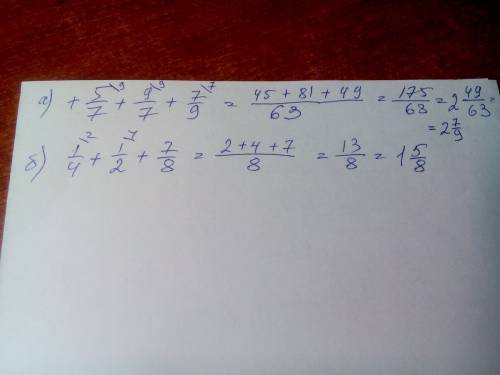 а) + 5/7 \9 + 9/7 \9 + 7/9 \7 = 45 + 81 + 49 / 63 = 175/63 = 2 49/63 =
= 2 7/9
б) 1/4 \2 + 1/2 + 7/8 = 2 + 4 + 7 / 8 = 13/8 = 1 5/8